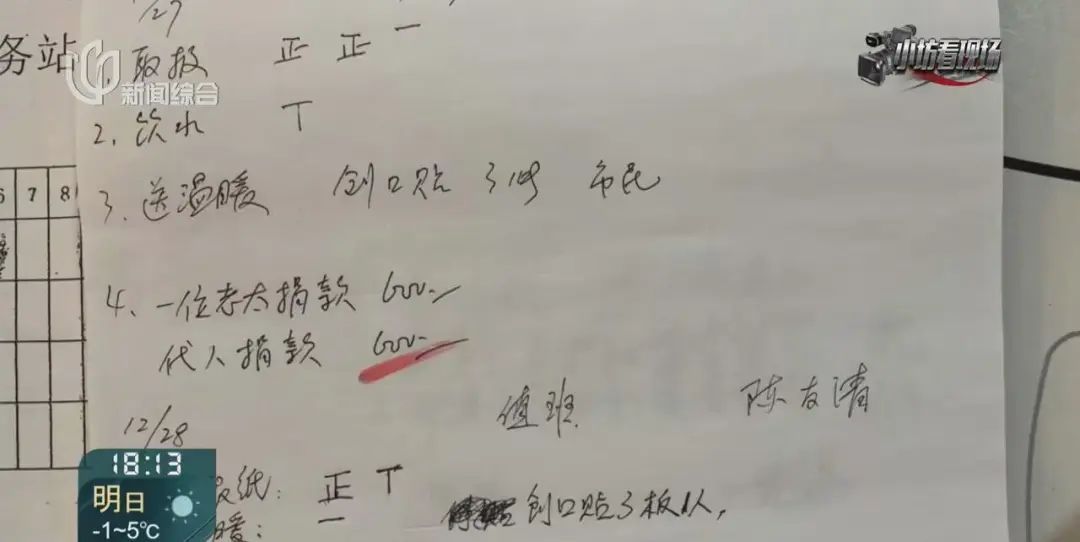 /27
务站
1, 取报 正 正 一
新闻综合
小坊看现场
2, 饮水 T
6 7 8
3. 送温暖 创口贴 3份 市民
4、一位老太捐款 600.
代人捐款 600.
值班 陈友清
12/28
纸: 正 T
暖: 一 创口贴3板1人,
18:13
明日
-1~5℃